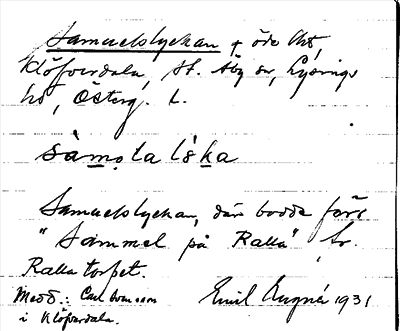 Samuelslyckan, öde lht,
Klöfverdala, St. Åby sn, Lysings
hd, Österg. L.
sàmo̤la lʹs̱ka
Samuelslyckan, där bodde förr
"Sammel på Ralla", fr.
Ralla torpet.
Medd.: Carl Ivarsson
i Klöfverdala.
Emil Augnér 1931